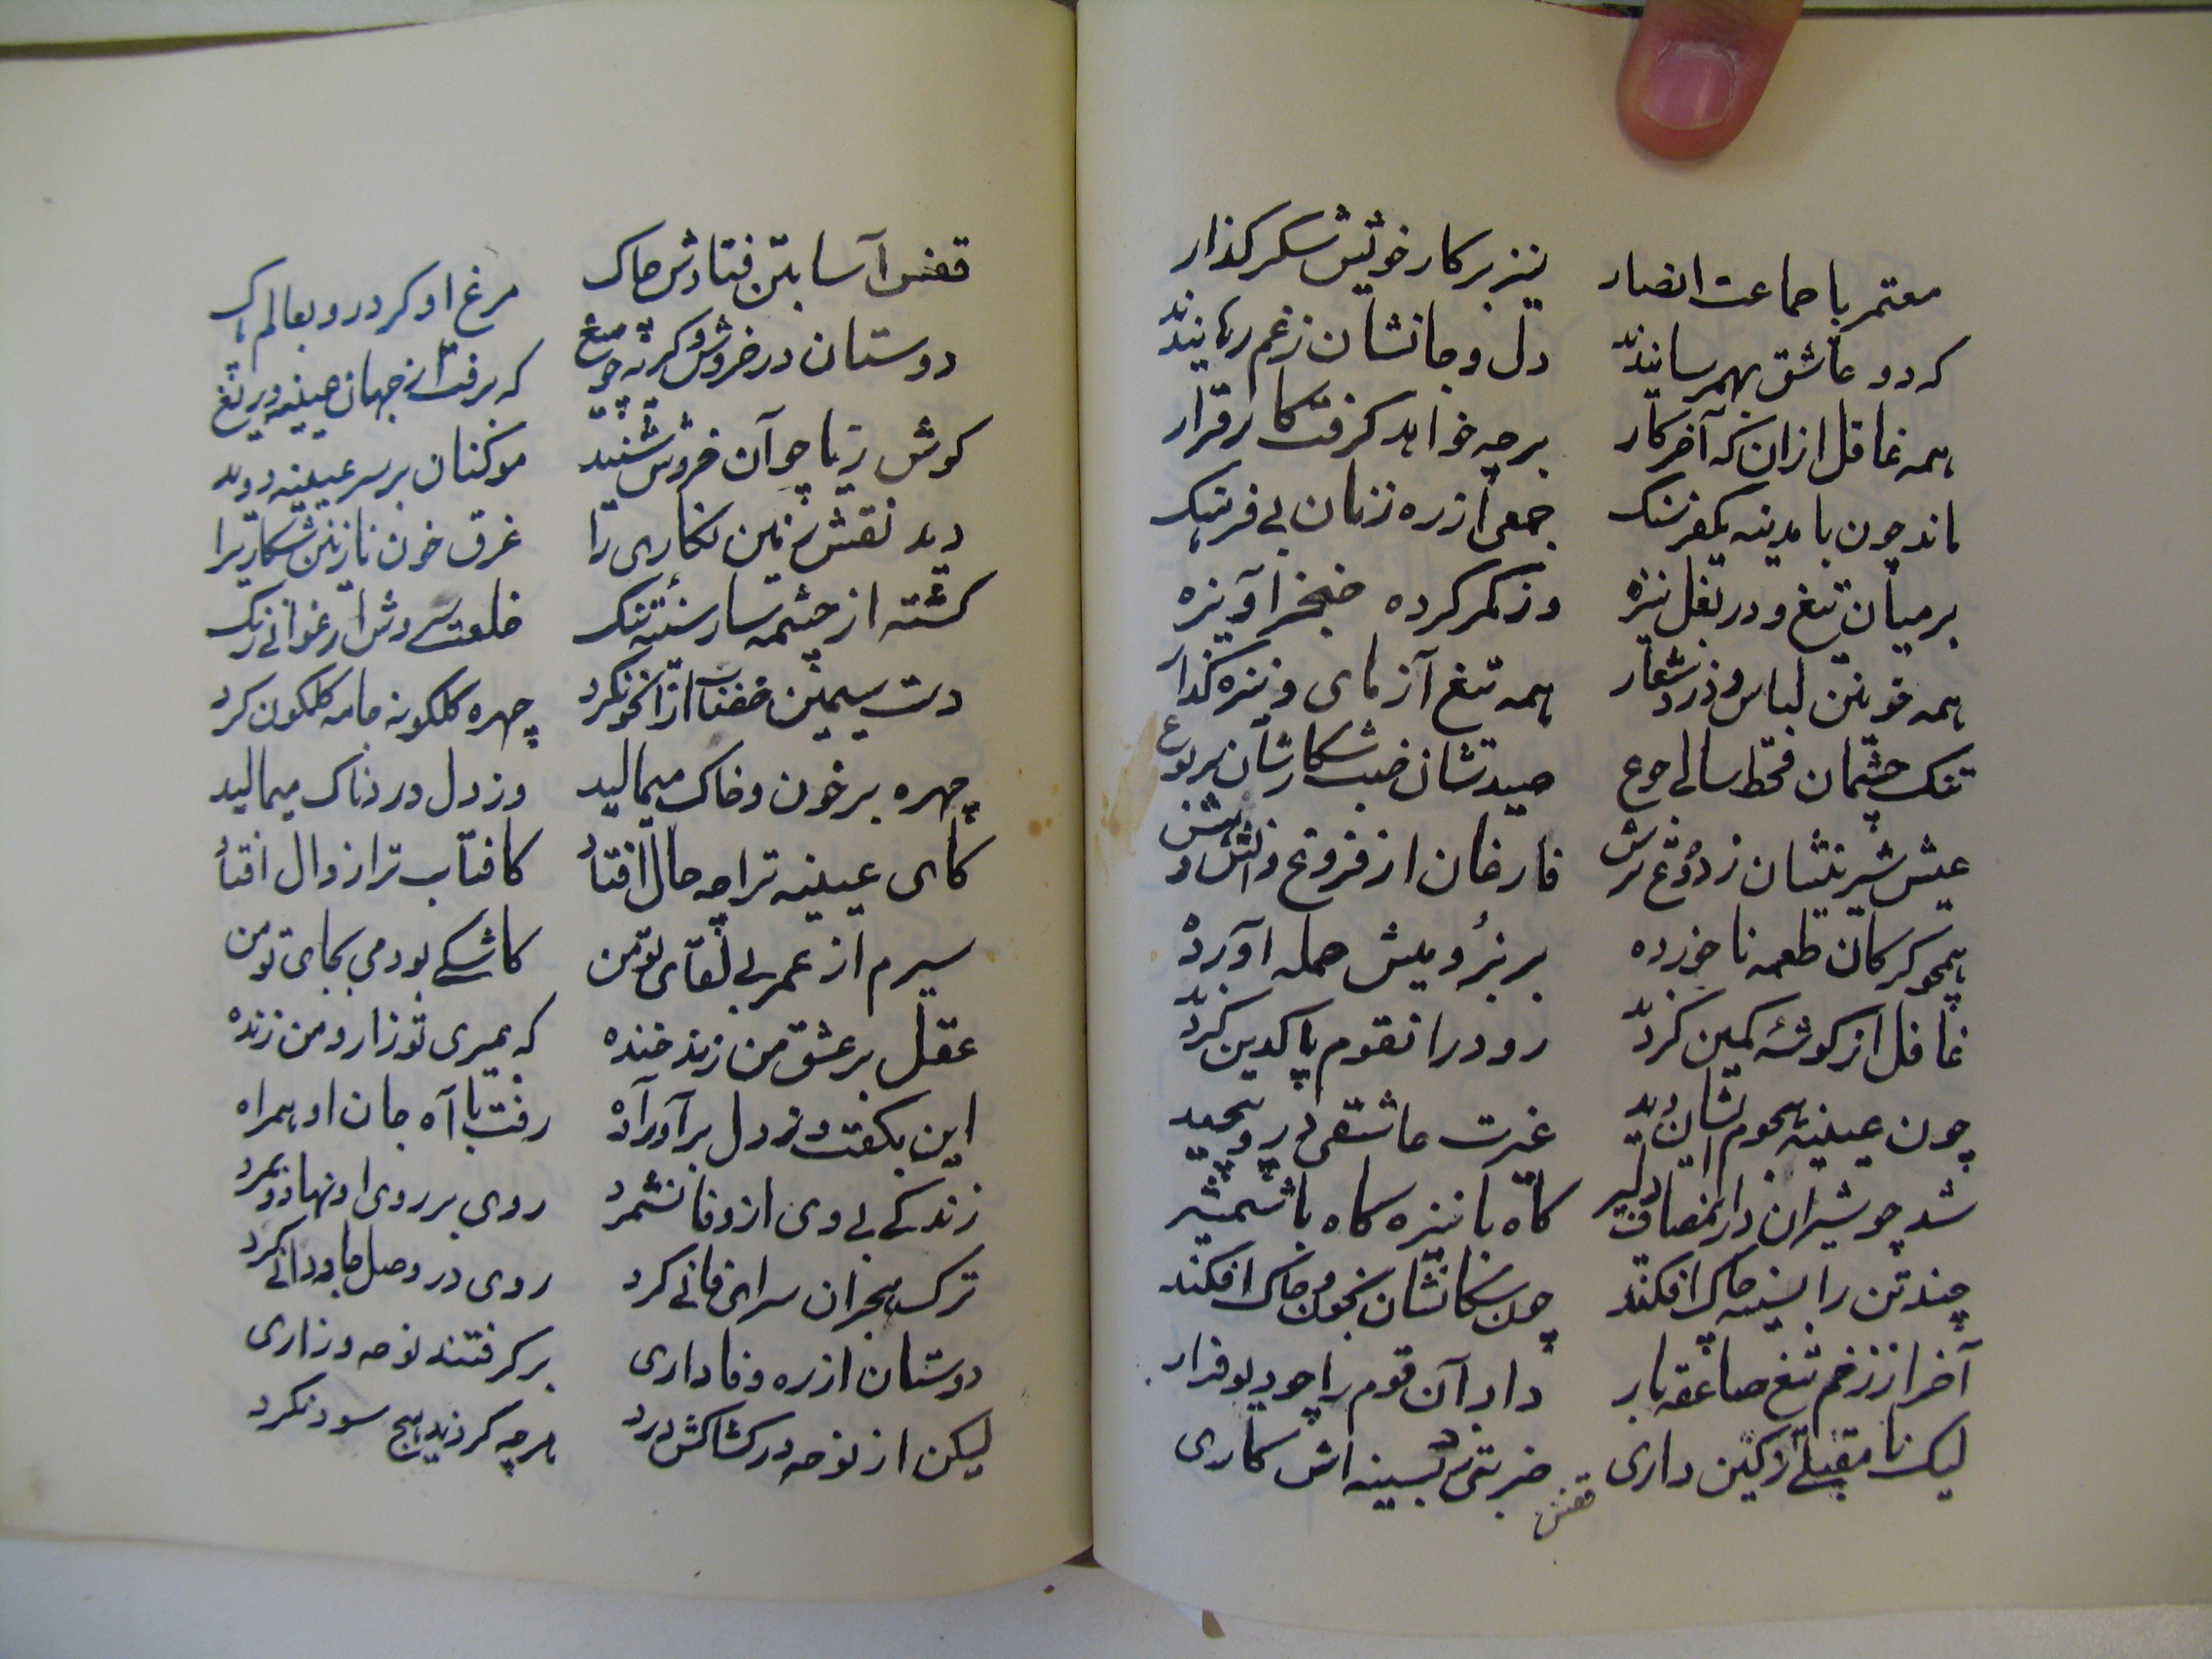 معتمر با جماعت انصار نیز بر کار خویش شکر گذار
که دو عاشق بهم رسانیدند دل و جانشان ز غم رهانیدند
همه غافل ازان که آخر کار بر چه خواهد گرفت کار قرار
ماند چون با مدینه یکفرسنک جمعی از رهزنان بی فرهنک
بر میان تیغ و در بغل نیزه وز کمر کرده خنجر آویزه
همه خونین لباس و دزد شعار همه تیغ آزمای و نیزه گذار
تنک چشمان قحط سالی جوع صیدشان ضب شکارشان یربوع
عیش شیرینشان ز دوغ ترش فارغان از فروغ دانش و هش
همچو کرکان طعمه ناخورده بر بز و میش حمله آورده
غافل از گوشهٔ کمین کردند رو در انقوم پاکدین کردند
چون عیینه هجوم ایشان دید غیرت عاشقی درو پیچید
شد چو شیران دران مصاف دلیر کاه با نیزه کاه با شمشیر
چند تن را بسینه چاک افکند چون سکانشان بخون و خاک افکند
آخر از زخم تیغ صاعقه بار داد آن قوم را چو دیو فرار
لیک نامقبلی ز کین داری ضربتی زد بسینه اش کاری
قفس
قفس آسا بتن فتادش چاک مرغ او کرد رو بعالم پاک
دوستان در خروش و کریه چو میغ که برفت از جهان عیینه دریغ
کوش ریا چو آن خروش شنید موکنان بر سر عیینه دوید
دید نقش زمین نکاری را غرق خون نازنین شکاری را
کشته از چشمه سار سینه تنک خلعت سروش ارغوانی رنک
دست سیمین خضاب ازان خون کرد چهره کلکونه جامه کلکون کرد
چهره بر خون و خاک میمالید وز دل دردناک مینالید
کای عیینه ترا چه حال افتاد کافتاب ترا زوال افتاد
سیرم از عمر بی لقای تو من کاشکی بودمی بجای تو من
عقل بر عشق من زند خنده که بمیری تو زار و من زنده
این بکفت و ز دل برآورد آه رفت با آه جان او همراه
زندکی بی وی از وفا نشمرد روی بر روی او نهاد و بمرد
ترک هجران سرای فانی کرد روی در وصل جاودانی کرد
دوستان از ره وفاداری برکرفتند نوحه و زاری
لیکن از نوحه در کشاکش درد هرچه کردند هیچ سود نکرد